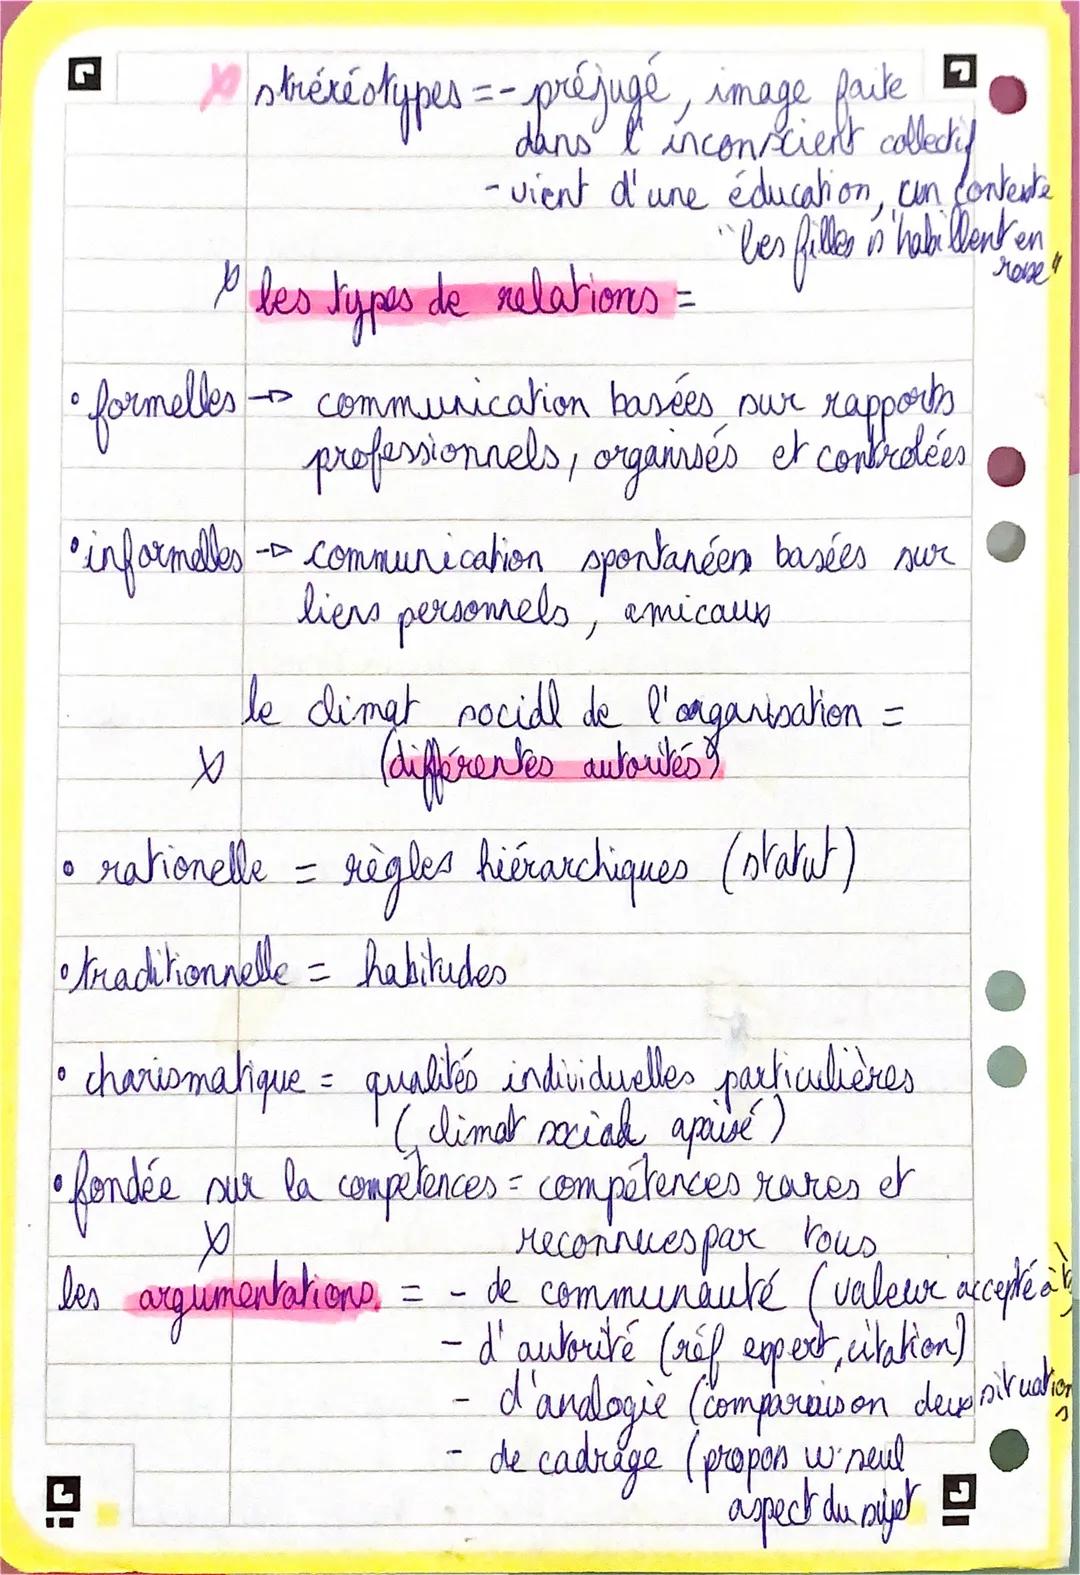 stréréotypes = - préjugé, image faite
dans l'inconscient collectif
- vient d'une éducation, un contexte
"les filles s'habillent en
rose"
les types de relations =
• formelles → communication basées sur rapports
professionnels, organisés et controlées
• informelles → communication spontanées basées sur
liens personnels, amicaux
le climat social de l'organisation =
(différentes autorités)
• rationelle = règles hiérarchiques (statut)
• traditionnelle = habitudes
• charismatique = qualités individuelles particulières
(climat sociale apaisé)
• fondée sur la compétences = compétences rares et
reconnues par tous
les argumentations = - de communauté (valeur accepté à
- d'autorité (réf expert, citation)
- d'analogie (comparaison deux situations
- de cadrage (propos seul
aspect du sujet